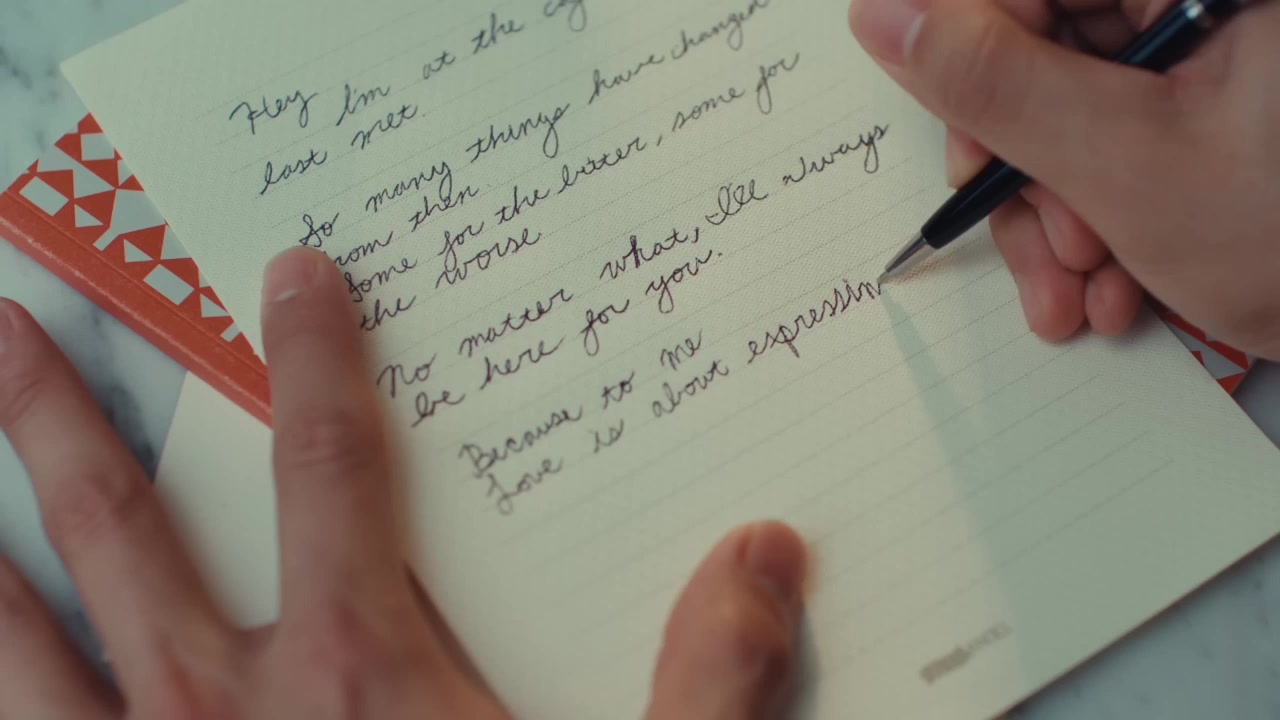 Hey
I'm at the
last met.
So many things have changed
from then.
Some for the better, some for
the worse.
No matter what, I'll always
be here for you.
Because to me
Love is about expressin